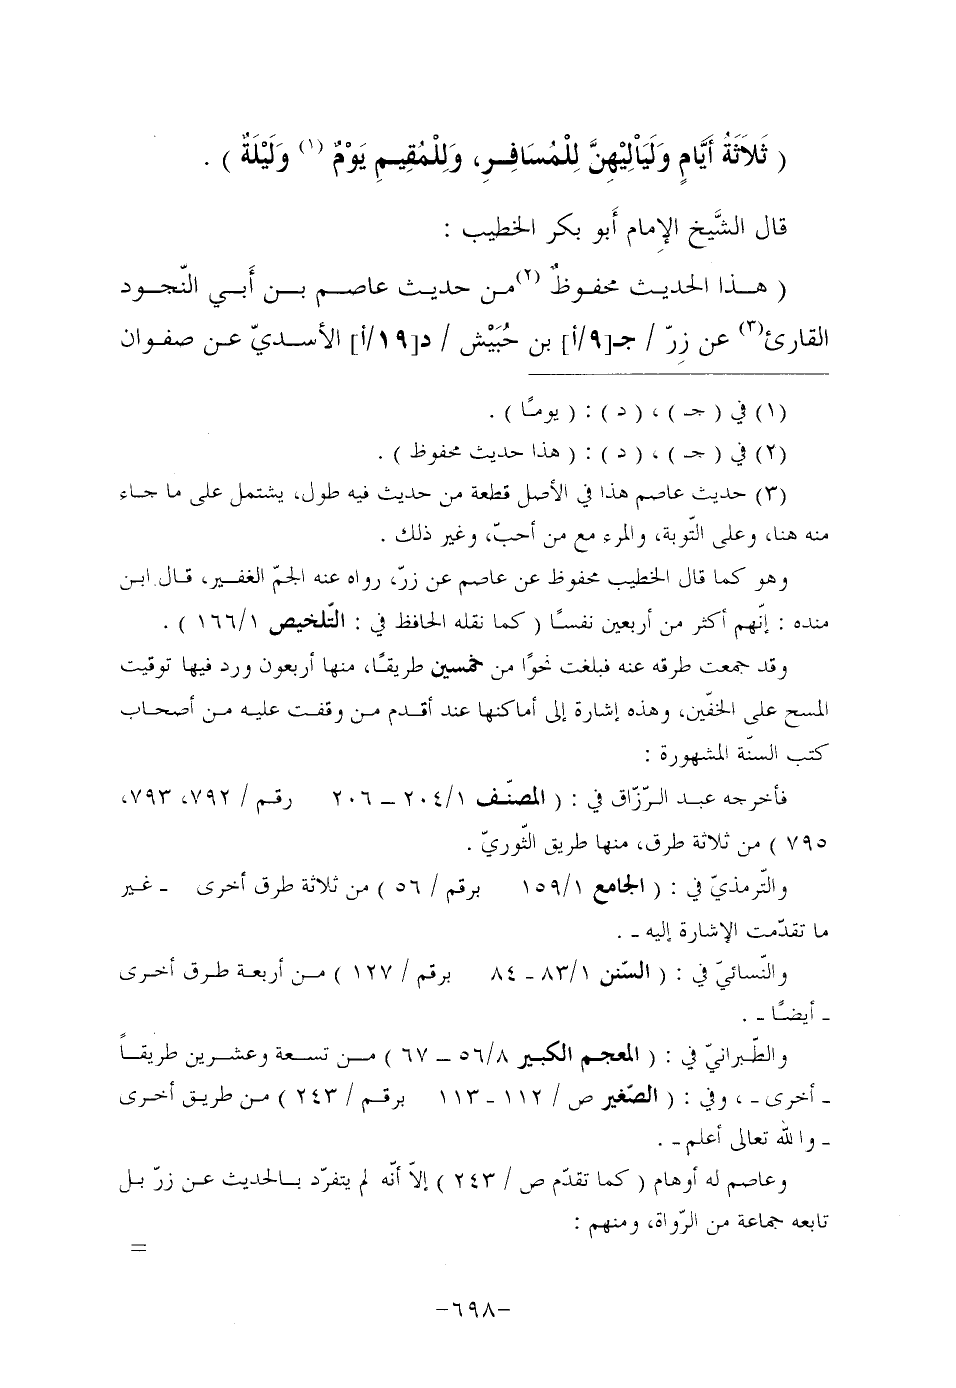 ( ثَلاَثَةُ أَيَّامٍ وَلَيَالِيْهِنَّ لِلْمُسَافِرِ، وَلِلْمُقِيمِ يَوْمٌ (١) وَلَيْلَةٌ ) .
قال الشَّيخ الإمام أبو بكر الخطيب :
( هذا الحديث محفوظٌ (٢)من حديث عاصم بن أَبي النّجود
القارئ(٣) عن زِرّ / جـ[٩/أ] بن حُبَيْش / د[١٩/أ] الأسديّ عن صفوان
(١) في ( جـ ) ، ( د ) : ( يومًا ) .
(٢) في ( جـ ) ، ( د ) : ( هذا حديث محفوظ ) .
(٣) حديث عاصم هذا في الأصل قطعة من حديث فيه طول، يشتمل على ما جاء
منه هنا، وعلى التّوبة، والمرء مع من أحبّ، وغير ذلك .
وهو كما قال الخطيب محفوظ عن عاصم عن زرّ، رواه عنه الجمّ الغفير، قال ابن
منده : إنّهم أكثر من أربعين نفسًا ( كما نقله الحافظ في : التّلخيص ١٦٦/١ ) .
وقد جمعت طرقه عنه فبلغت نحوًا من خمسين طريقًا، منها أربعون ورد فيها توقيت
المسح على الخفّين، وهذه إشارة إلى أماكنها عند أقدم من وقفت عليه من أصحاب
كتب السنّة المشهورة :
فأخرجه عبد الرّزّاق في : ( المصنّف ٢٠٤/١ – ٢٠٦ رقم / ٧٩٢، ٧٩٣،
٧٩٥ ) من ثلاثة طرق، منها طريق الثّوريّ .
والتّرمذيّ في : ( الجامع ١٥٩/١ برقم / ٥٦ ) من ثلاثة طرق أخرى - غير
ما تقدّمت الإشارة إليه - .
والنّسائيّ في : ( السّنن ٨٣/١ - ٨٤ برقم / ١٢٧ ) من أربعة طرق أخرى
- أيضًا - .
والطّبرانيّ في : ( المعجم الكبير ٥٦/٨ – ٦٧ ) من تسعة وعشرين طريقاً
- أخرى - ، وفي : ( الصّغير ص / ١١٢ - ١١٣ برقم / ٢٤٣ ) من طريق أخرى
- والله تعالى أعلم - .
وعاصم له أوهام ( كما تقدّم ص / ٢٤٣ ) إلاّ أنّه لم يتفرّد بالحديث عن زرّ بل
تابعه جماعة من الرّواة، ومنهم :
=
-٦٩٨-